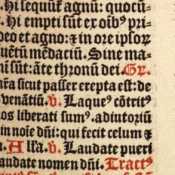 Hi sequūt̄ agnū: quocū
Hi empti sūt ex oīb᷒
deo et agno: ⁊ in ore ipsoꝝ
uētū mēdaciū. Sine ma
ni sūt: āte thronū dei. Gr.
nr̄a sicut passer erepta est: de
venātiū. ꝟ. Laque᷒ cōtrit᷒
os liberati sum᷒. adiutori
in noīe dn̄i: qui fecit celum ⁊
Alla. ꝟ. Laudate pueri
audate nomen dn̄i. Tract᷒